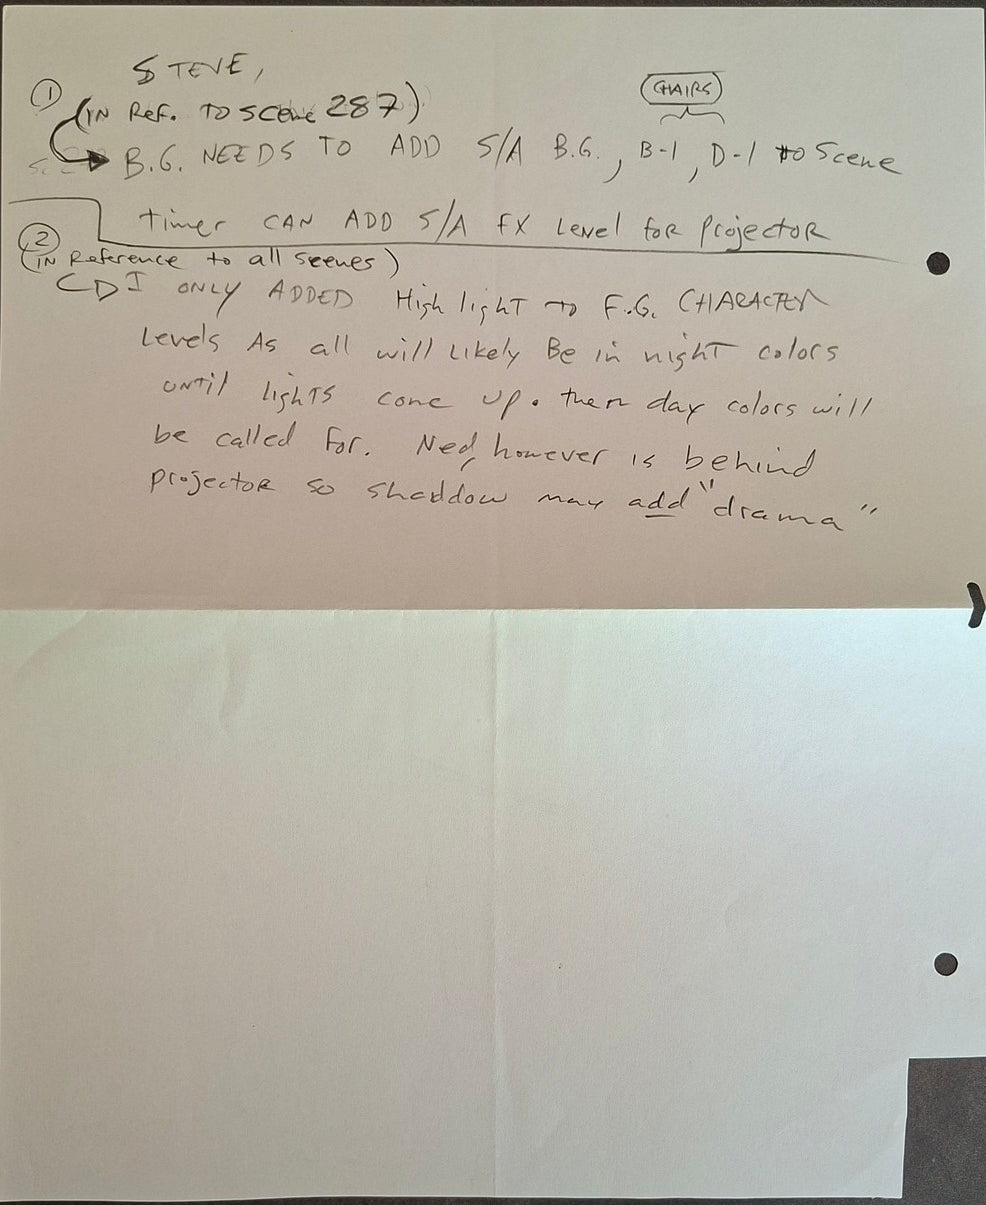 STEVE,
① (IN Ref. TO SCENE 287)
CHAIRS
B.G. NEEDS TO ADD S/A B.G., B-1, D-1 to Scene
timer CAN ADD S/A FX Level for Projector
②
(IN Reference to all scenes)
I ONLY ADDED High light to F.G. CHARACTER
Levels As all will Likely Be in night colors
UNTIL lights come up. then day colors will
be called for. Ned, however is behind
projector so shaddow may add "drama"